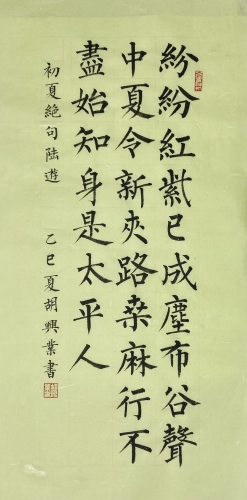 紛紛紅紫已成塵布谷聲
中夏令新夾路桑麻行不
盡始知身是太平人
初夏絕句陸遊
乙巳夏胡興業書